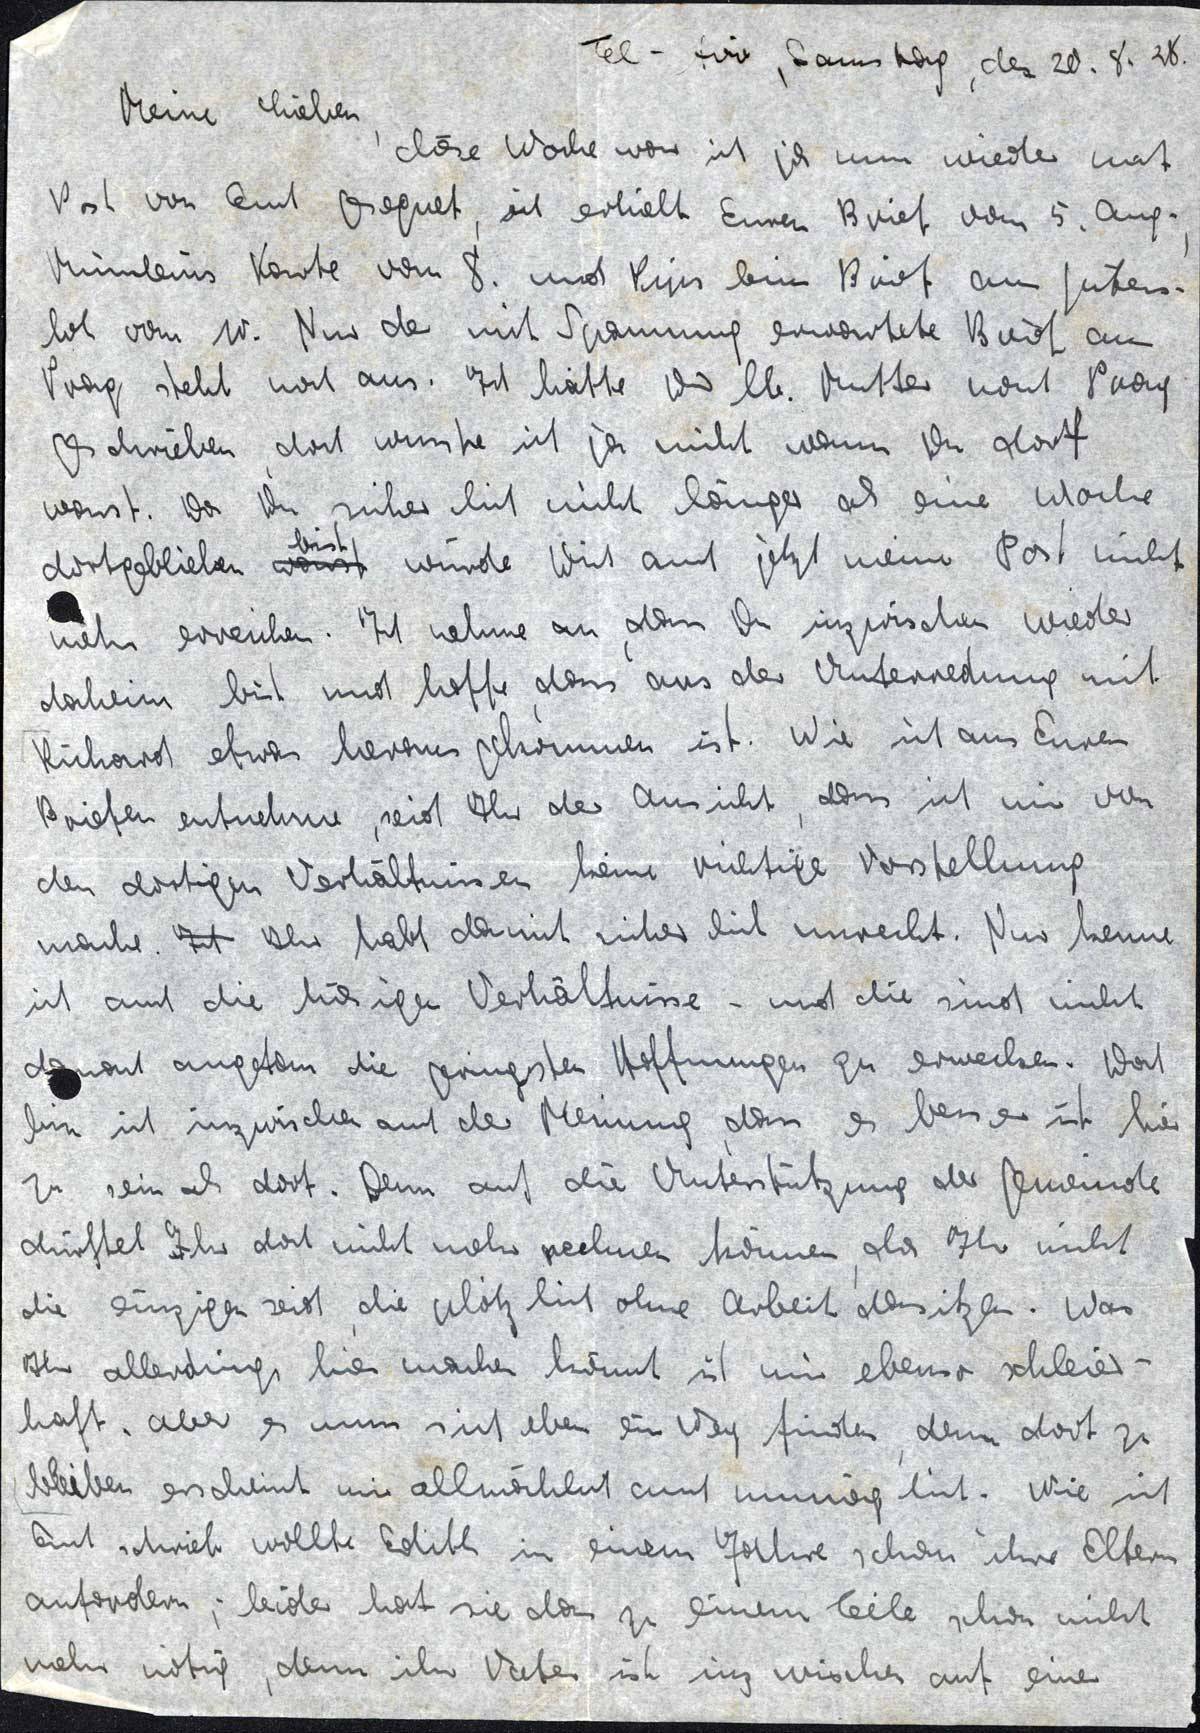 Tel-Aviv, Samstag, den 20. 8. 38.
Meine Lieben,
diese Woche war ich ja nun wieder mit
Post von Euch gesegnet, ich erhielt Euren Brief vom 5. Aug.,
Karte vom 8. und Brief aus
vom 10. Nur der mit Spannung erwartete Brief aus
Prag steht noch aus. Ich hätte Dir lb. Mutter nach Prag
geschrieben, doch wusste ich ja nicht wann Du dort
warst. Da Du sicherlich nicht länger als eine Woche
dortgeblieben warst bist, würde Dich auch jetzt meine Post nicht
mehr erreichen. Ich nehme an, dass Du inzwischen wieder
daheim bist und hoffe, dass aus der Unterredung mit
Richard etwas herausgekommen ist. Wie ich aus Euren
Briefen entnehme, seid Ihr der Ansicht, dass ich mir von
den dortigen Verhältnissen keine richtige Vorstellung
mache. Ich Ihr habt damit sicherlich unrecht. Nur kenne
ich auch die hiesigen Verhältnisse - und die sind nicht
danach angetan die geringsten Hoffnungen zu erwecken. Doch
bin ich inzwischen auch der Meinung, dass es besser ist hier
zu sein als dort. Denn auf die Unterstützung der Gemeinde
dürftet Ihr dort nicht mehr rechnen können, da Ihr nicht
die einzigen seid, die plötzlich ohne Arbeit dasitzen. Was
Ihr allerdings hier machen könnt ist mir ebenso schleier-
haft. Aber es muss sich eben ein Weg finden, denn dort zu
bleiben erscheint mir allmählich auch unmöglich. Wie ich
Euch schrieb wollte Edith in einem Jahre schon ihre Eltern
anfordern; leider hat sie das zu einem Teile schon nicht
mehr nötig, denn ihr Vater ist inzwischen auf einer